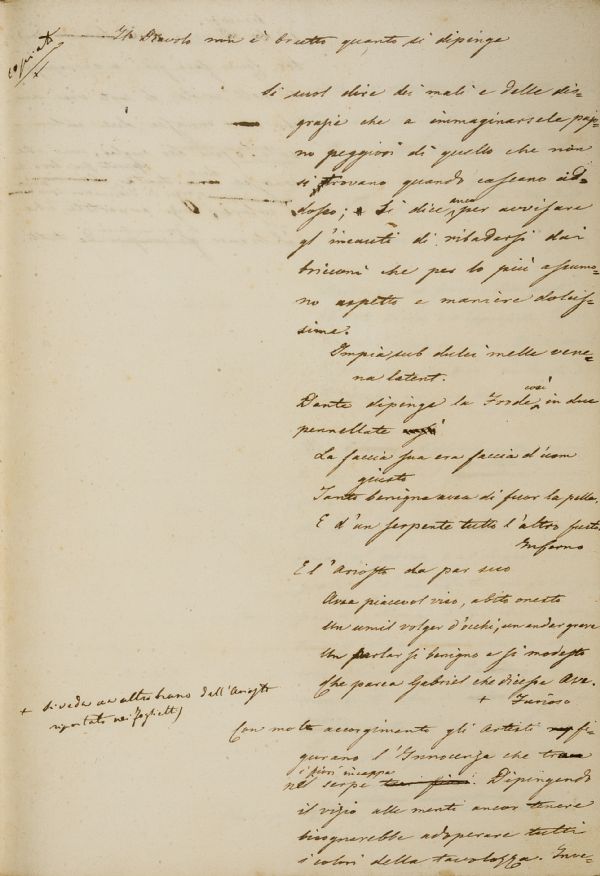 copiato
Il Diavolo non è brutto quanto si dipinge
Si suol dire dei mali e delle dis-
grazie che a immaginarsele paj-
no peggiori di quello che non
si trovano quando cascano ad-
dosso; Si dice anco per avvisare
gl'incauti di ribadarsi dai
bricconi che per lo più assumo-
no aspetto e maniere dolcis-
sime.
Impia sub dulci melle vene-
na latent.
Dante dipinge la Frode così in due
pennellate
La faccia sua era faccia d'uom
giusto
Tanto benigna avea di fuor la pelle,
E d'un serpente tutto l'altro fusto.
Inferno
E l'Ariosto da par suo
Avea piacevol viso, abito onesto
Un umil volger d'occhi, un andar grave
Un parlar sì benigno e sì modesto
Che parea Gabriel che dicesse Ave.
+ Furioso
+ si veda un altro brano dell'Ariosto
riportato nei foglietti)
Con molto accorgimento gli Artisti raffi-
gurano l'Innocenza che tra
i fiori incappa
nel serpe tra i fiori. Dipingendo
il vizio alle menti ancor tenere
bisognerebbe adoperare tutti
i colori della tavolozza. Inve-